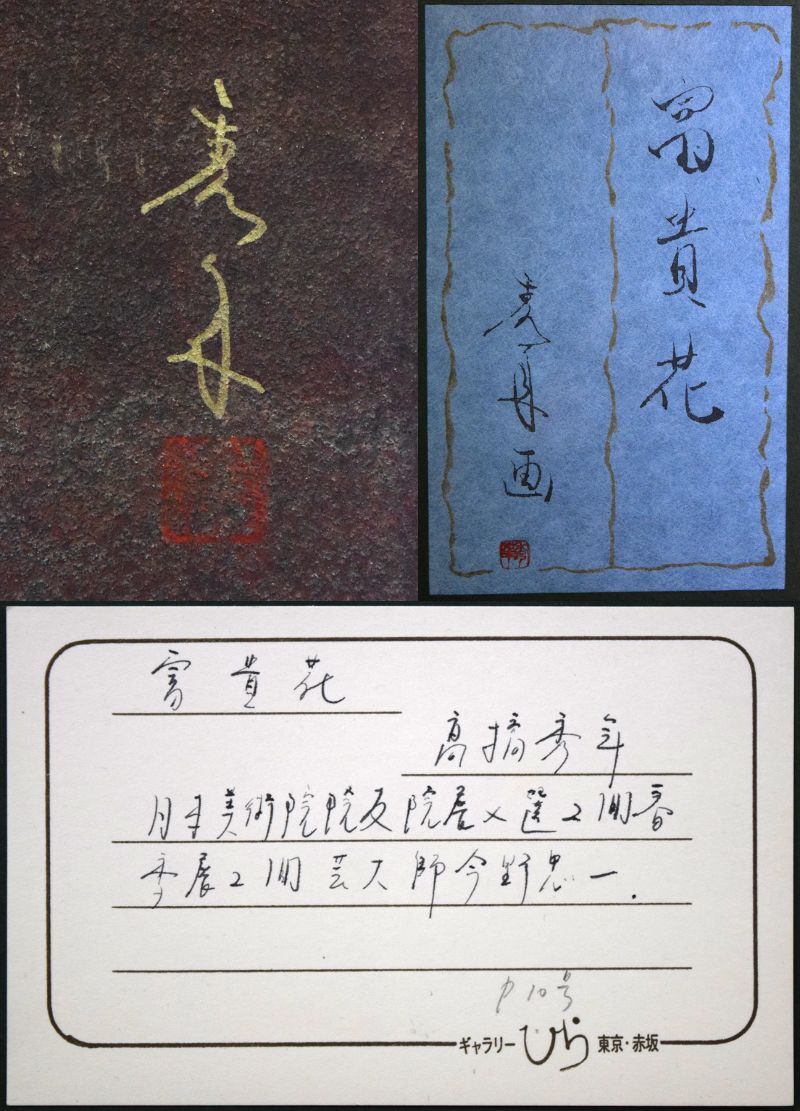 秀年
富貴花
秀年画
富貴花
高橋秀年
日本美術院院友院展入選2回春
季展2回芸大師今野忠一.
P10号
ギャラリーひら 東京・赤坂